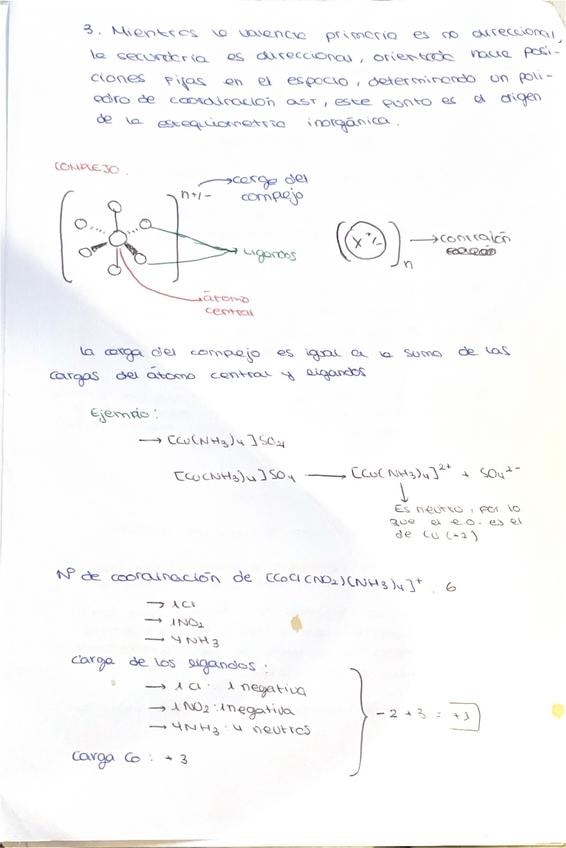 3. Mientras la valencia primaria es no direccional,
la secundaria es direccional, orientada hacia posi-
ciones fijas en el espacio, determinando un poli-
edro de coordinación así, este punto es el origen
de la estequiometría inorgánica.
COMPLEJO.
n+/-
carga del
complejo
Ligandos
átomo
central
(X+/-)n
contraión
La carga del complejo es igual a la suma de las
cargas del átomo central y ligandos
Ejemplo:
→ [Cu(NH3)4]SO4
[Cu(NH3)4]SO4 → [Cu(NH3)4]2+ + SO4 2-
Es neutro, por lo
que el e.o. es el
de Cu (+2)
Nº de coordinación de [CoCl(NO2)(NH3)4]+. 6
→ 1Cl
→ 1NO2
→ 4NH3
Carga de los ligandos:
→ 1Cl: 1 negativa
→ 1NO2: 1negativa
→ 4NH3: 4 neutros
-2+3 = +1
Carga Co: +3